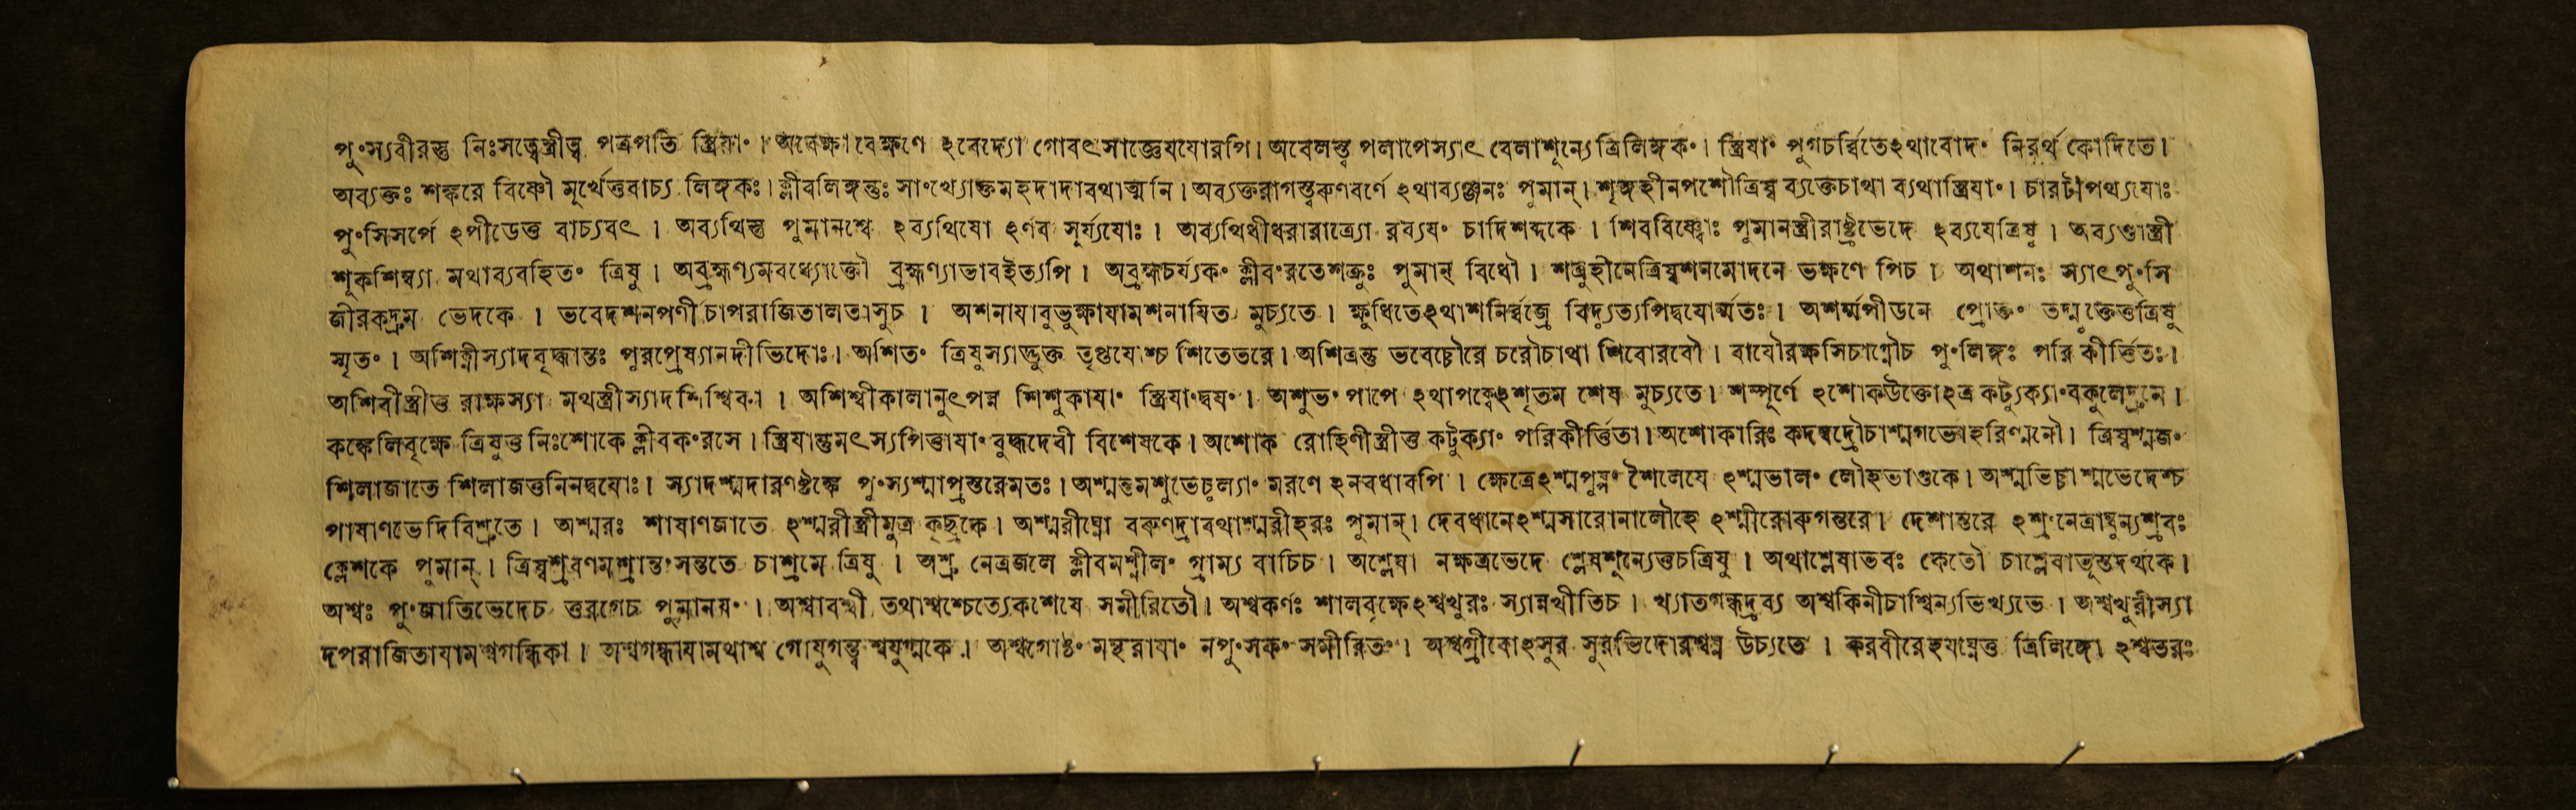 পুংস্যবীরস্তু নিঃসত্ত্বেস্ত্রীত্ব পত্রপতি স্ত্রিয়াং । অবেক্ষাবেক্ষণে ঽবেদ্যো গোবৎসাজ্ঞেযযোরপি। অবেলস্তু পলাপেস্যাৎ বেলাশূন্যেত্রিলিঙ্গকং। স্ত্রিযাং পুগচর্ব্বিতেঽথাবোদং নিরর্থ কোদিতে।
অব্যক্তঃ শঙ্করে বিষ্ণৌ মূর্খেত্তবাচ্য লিঙ্গকঃ। ক্লীবলিঙ্গন্তুঃ সাংখ্যোক্তমহদাদাবথাত্মনি। অব্যক্তরাগস্ত্বরুণবর্ণে ঽথাব্যঞ্জনঃ পুমান্। শৃঙ্গহীনপশৌত্রিষ্ব ব্যক্তেচাথা ব্যথাস্ত্রিযাং। চারটীপথ্যযোঃ
পুংসিসর্পে ঽপীডেত্ত বাচ্যবৎ । অব্যথিস্তু পুমানশ্বে ঽব্যথিষো ঽর্ণব সূর্য্যযোঃ । অব্যথিষীধরারাত্র্যো রব্যযং চাদিশব্দকে । শিববিষ্ণ্বোঃ পুমানস্ত্রীরাষ্ট্রভেদে ঽব্যযেত্রিষু । অব্যণ্ডাস্ত্রী
শূকশিম্ব্যা মথাব্যবহিতং ত্রিষু । অব্রহ্মণ্যমবধ্যোক্তৌ ব্রহ্মণ্যাভাবইত্যপি । অব্রহ্মচর্য্যকং ক্লীবংরতেশত্রুঃ পুমান্ বিধৌ। শত্রুহীনেত্রিষ্বশনমোদনে ভক্ষণে পিচ । অথাশনঃ স্যাৎপুংসি
জীরকদ্রুম ভেদকে । ভবেদশনপর্ণী চাপরাজিতালতাসুচ । অশনাযাবুভুক্ষাযামশনাযিত মুচ্যতে । ক্ষুধিতেঽথাশনির্ব্বজ্রে বিদ্যুত্যপিদ্বযোর্ম্মতঃ। অশর্ম্মপীডনে প্রোক্তং তদ্মুক্তেত্তত্রিষু
স্মৃতং । অশিক্লীস্যাদবৃদ্ধান্তঃ পুরপ্রেষ্যানদীভিদোঃ। অশিতং ত্রিষুস্যাদ্ভুক্ত তৃপ্তযোশ্চ শিতেতরে। অশিত্রন্তু ভবেচ্চৌরে চরৌচাথা শিবোরবৌ । বাযৌরক্ষসিচাগ্নৌচ পুংলিঙ্গঃ পরি কীর্ত্তিতঃ।
অশিবীস্ত্রীত্ত রাক্ষস্যা মথস্ত্রীস্যাদশিশ্বিকা । অশিশ্বীকালানুৎপন্ন শিশুকাযাং স্ত্রিযাংদ্বযং । অশুভং পাপে ঽথাপক্বেঽশৃতম শেষ মুচ্যতে। শম্পূর্ণে ঽশোকউক্তোঽত্র কট্যুক্যাংবকুলেদ্রুমে।
কঙ্কেলিবৃক্ষে ত্রিষুত্ত নিঃশোকে ক্লীবকংরসে। স্ত্রিযান্তুমৎস্যপিত্তাযাং বুদ্ধদেবী বিশেষকে। অশোক রোহিণীস্ত্রীত্ত কটুক্যাং পরিকীর্ত্তিতা। অশোকারিঃ কদম্বদ্রৌচাশ্মগর্ভোহরিণ্মনৌ। ত্রিষ্বশ্মজং
শিলাজাতে শিলাজত্তনিনদ্বযোঃ। স্যাদশ্মদারণষ্টঙ্কে পুংস্যশ্মাপ্রস্তরেমতঃ। অশ্মন্তমশুভেচুল্যাং মরণে ঽনবধাবপি । ক্ষেত্রেঽশ্মপুষ্পং শৈলেযে ঽশ্মভালং লৌহভাণ্ডকে। অশ্মভিচ্চাশ্মভেদেশ্চ
পাষাণভেদিবিশ্রুতে। অশ্মরঃ শাষাণজাতে ঽশ্মরীস্ত্রীমুত্র কৃচ্ছ্রকে। অশ্মরীঘ্নো বরুণদ্রাবথাশ্মরীহরঃ পুমান্। দেবধ্বানেঽশ্মসারোনালৌহে ঽশ্মীরোরুগন্তরে। দেশান্তরে ঽশ্রংনেত্রাম্বুন্যশ্রবঃ
ক্লেশকে পুমান্। ত্রিষ্বশ্রবণমশ্রান্তংসন্ততে চাশ্রমে ত্রিষু । অশ্রু নেত্রজলে ক্লীবমশ্লীলং গ্রাম্য বাচিচ । অশ্লেষা নক্ষত্রভেদে শ্লেষশূন্যেত্তচত্রিষু । অথাশ্লেষাভবঃ কেতৌ চাশ্লেষাভূস্তদর্থকে।
অশ্বঃ পুংজাতিভেদেচ ত্তরগেচ পুমানযং । অশ্বাবশ্বী তথাশ্বশ্চেত্যেকশেষে সমীরিতৌ। অশ্বকর্ণঃ শালবৃক্ষেঽশ্বখুরঃ স্যান্নখীতিচ । খ্যাতগন্ধদ্রব্য অশ্বকিনীচাশ্বিন্যভিখ্যভে । অশ্বখুরীস্যা
দপরাজিতাযামশ্বগন্ধিকা। অশ্বগন্ধাযামথাশ্ব গোযুগন্ত্ব শ্বযুগ্মকে । অশ্বগোষ্ঠং মন্থরাযাং নপুংসকং সমীরিতং। অশ্বগ্রীবোঽসুর সুরভিদোরশ্বঘ্ন উচ্যতে । করবীরেহযঘ্নেত্ত ত্রিলিঙ্গো ঽশ্বতরঃ